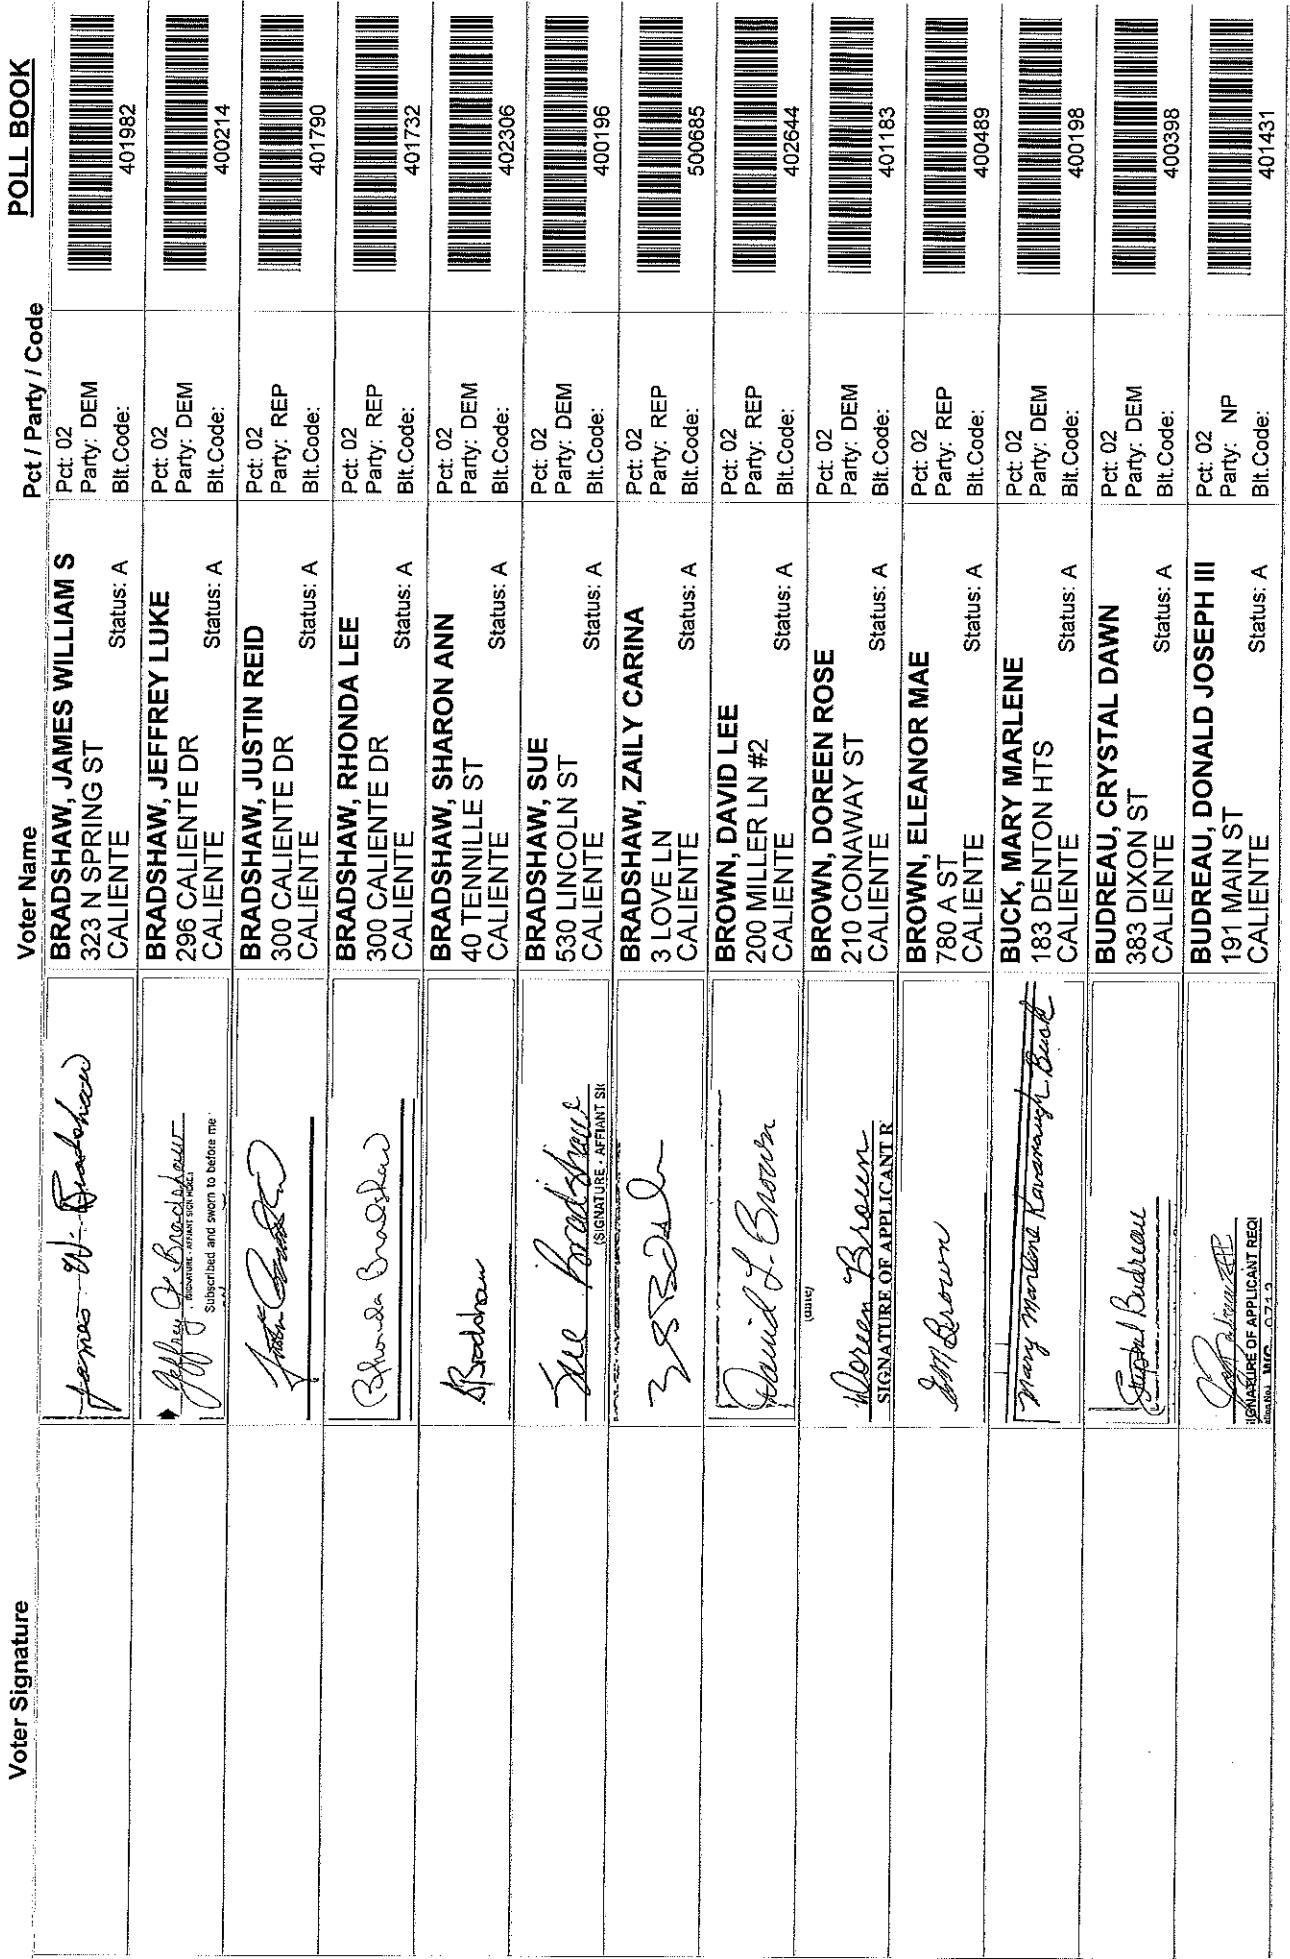 POLL BOOK
Voter Signature Voter Name Pct / Party / Code
James W. Bradshaw
BRADSHAW, JAMES WILLIAM S
323 N SPRING ST
CALIENTE Status: A
Pct: 02
Party: DEM
Blt.Code:
401982
Jeffrey Bradshaw
(SIGNATURE - AFFIANT SIGN HERE)
Subscribed and sworn to before me
BRADSHAW, JEFFREY LUKE
296 CALIENTE DR
CALIENTE Status: A
Pct: 02
Party: DEM
Blt.Code:
400214
Justin
BRADSHAW, JUSTIN REID
300 CALIENTE DR
CALIENTE Status: A
Pct: 02
Party: REP
Blt.Code:
401790
Rhonda Bradshaw
BRADSHAW, RHONDA LEE
300 CALIENTE DR
CALIENTE Status: A
Pct: 02
Party: REP
Blt.Code:
401732
SBradshaw
BRADSHAW, SHARON ANN
40 TENNILLE ST
CALIENTE Status: A
Pct: 02
Party: DEM
Blt.Code:
402306
Sue Bradshaw
(SIGNATURE - AFFIANT SI
BRADSHAW, SUE
530 LINCOLN ST
CALIENTE Status: A
Pct: 02
Party: DEM
Blt.Code:
400196
BRADSHAW, ZAILY CARINA
3 LOVE LN
CALIENTE Status: A
Pct: 02
Party: REP
Blt.Code:
500685
David L. Brown
BROWN, DAVID LEE
200 MILLER LN #2
CALIENTE Status: A
Pct: 02
Party: REP
Blt.Code:
402644
(date)
Doreen Brown
SIGNATURE OF APPLICANT R
BROWN, DOREEN ROSE
210 CONAWAY ST
CALIENTE Status: A
Pct: 02
Party: DEM
Blt.Code:
401183
EM Brown
BROWN, ELEANOR MAE
780 A ST
CALIENTE Status: A
Pct: 02
Party: REP
Blt.Code:
400489
Mary Marlene Kavanaugh Buck
BUCK, MARY MARLENE
183 DENTON HTS
CALIENTE Status: A
Pct: 02
Party: DEM
Blt.Code:
400198
Crystal Budreau
BUDREAU, CRYSTAL DAWN
383 DIXON ST
CALIENTE Status: A
Pct: 02
Party: DEM
Blt.Code:
400398
IGNATURE OF APPLICANT REQI
BUDREAU, DONALD JOSEPH III
191 MAIN ST
CALIENTE Status: A
Pct: 02
Party: NP
Blt.Code:
401431